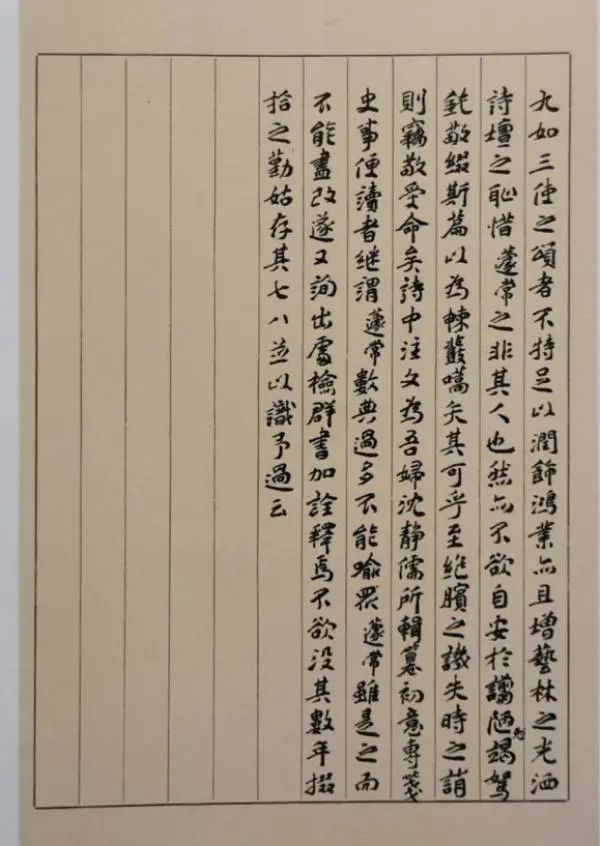 九如三使之頌者不特足以潤飾鴻業亦且增藝林之光洒
詩壇之恥惜蘧常之非其人也然亦不欲自安於譾陋竭駑
鈍敬綴斯篇以為嚆矢其可乎至絕臏之譏失時之誚
則竊敬受命矣詩中注文為吾婦沈靜儒所輯纂初意專箋
史事便讀者繼謂蘧常數典過多不能喻眾蘧常雖是之而
不能盡改遂又詢出處檢群書加詮釋焉不欲没其數年掇
拾之勤姑存其七八並以識予過云